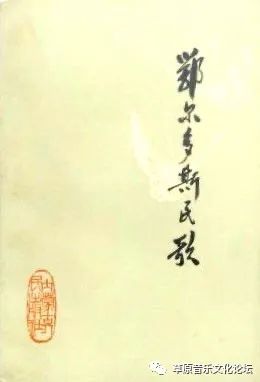 鄂尔多斯民歌
草原音乐文化论坛